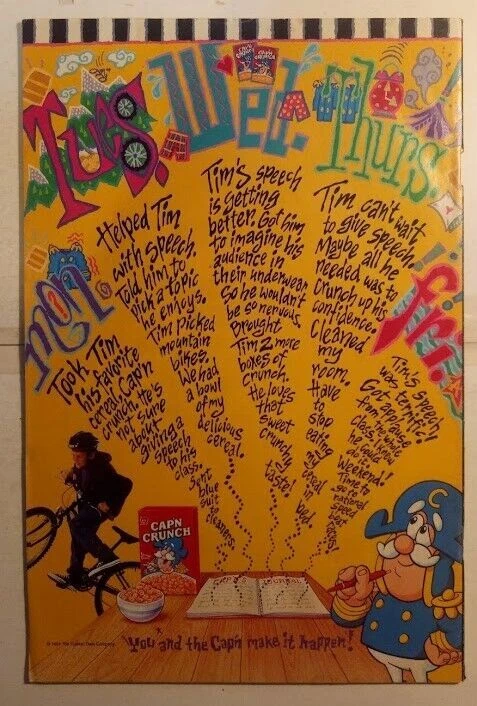 Mon.
Tues.
Wed.
Thurs.
fri.
Took Tim
his favorite
cereal, Cap'n
crunch. He's
not sure
about
giving a
speech
to his
class.
Sent
blue
suit
to cleaners.
Helped Tim
with speech.
Told him to
pick a topic
he enjoys.
Tim picked
mountain
bikes.
We had
a bowl
of my
delicious
cereal.
Tim's speech
is getting
better. Got him
to imagine his
audience in
their underwear
so he wouldn't
be so nervous.
Brought
Tim 2 more
boxes of
crunch.
He loves
that
sweet
crunchy
taste!
Tim can't wait
to give speech.
Maybe all he
needed was to
crunch up his
confidence.
Cleaned
my
room.
Have
to
stop
eating
my
cereal
in
bed.
Tim's speech
was terrific!
Got applause
from the whole
class! I
knew
he could
do it.
Weekend!
Time to
go to
national
speed
boat
races!
CAP'N
CRUNCH
CAP'N'S JOURNAL
You and the Cap'n make it happen!